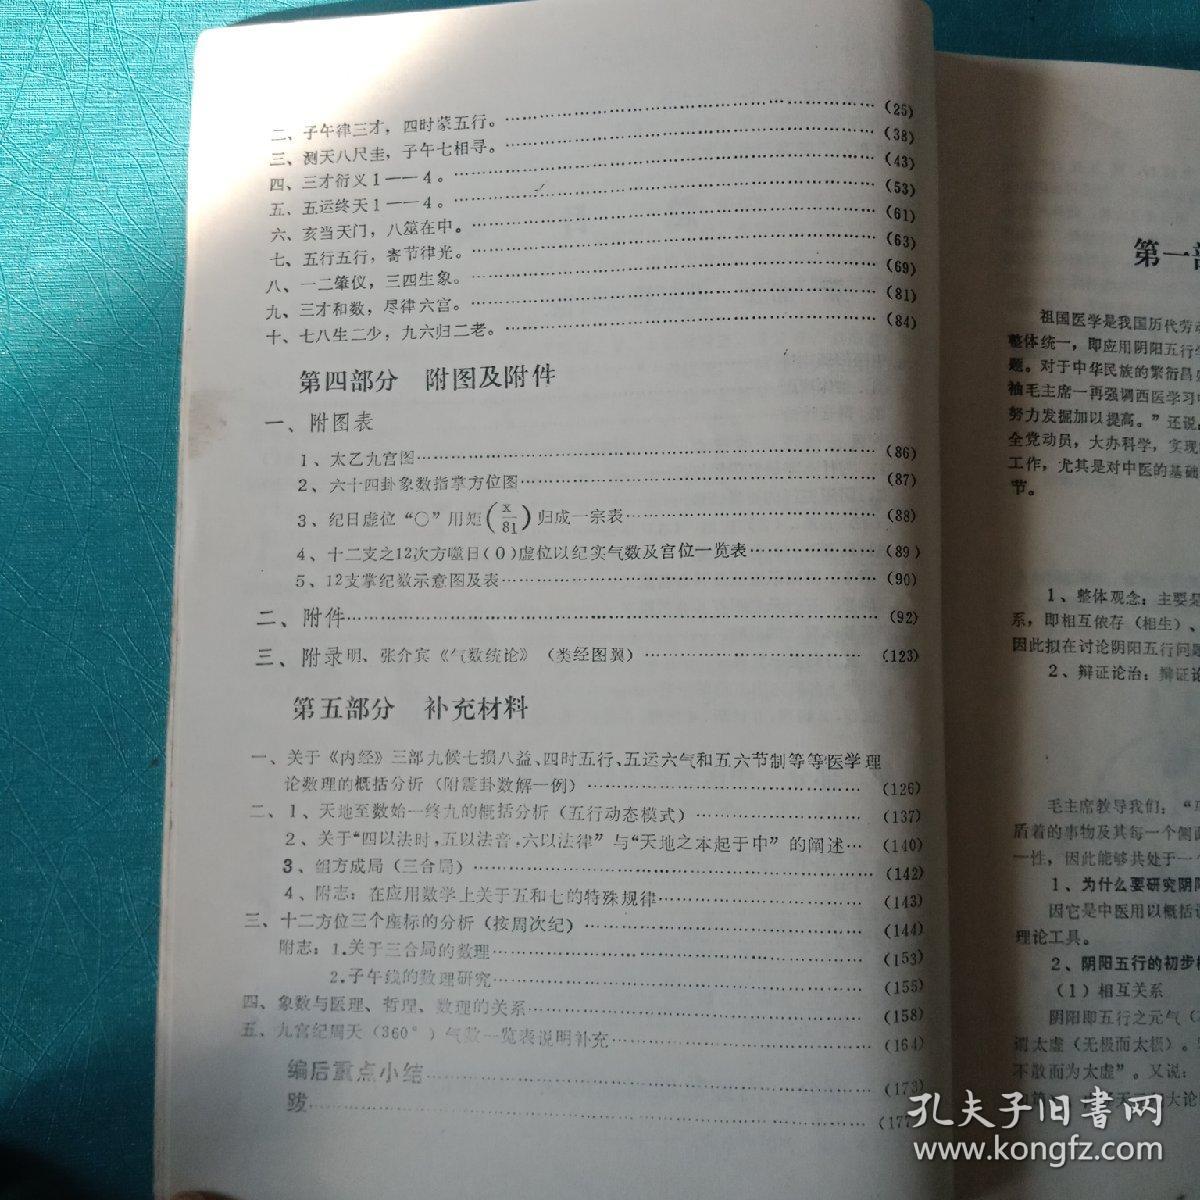 二、子午律三才，四时蒙五行。……(25)
三、测天八尺圭，子午七相寻。……(38)
四、三才衍义1——4。……(43)
五、五运终天1——4。……(53)
六、亥当天门，八筮在中。……(61)
七、五行五行，寄节律光。……(63)
八、一二肇仪，三四生象。……(69)
九、三才和数，尽律六宫。……(81)
十、七八生二少，九六归二老。……(84)
第四部分 附图及附件
一、附图表
1、太乙九宫图……(86)
2、六十四卦象数指掌方位图……(87)
3、纪日虚位“○”用矩(x/81)归成一宗表……(88)
4、十二支之12次方噬日(0)虚位以纪实气数及宫位一览表……(89)
5、12支掌纪数示意图及表……(90)
二、附件……(92)
三、附录明、张介宾《气数统论》（类经图翼）……(123)
第五部分 补充材料
一、关于《内经》三部九候七损八益、四时五行、五运六气和五六节制等等医学理
论数理的概括分析（附震卦数解一例）……(126)
二、1、天地至数始一终九的概括分析（五行动态模式）……(137)
2、关于“四以法时，五以法音，六以法律”与“天地之本起于中”的阐述…(140)
3、组方成局（三合局）……(142)
4、附志：在应用数学上关于五和七的特殊规律……(143)
三、十二方位三个座标的分析（按周次纪）……(144)
附志：1.关于三合局的数理……(153)
2.子午线的数理研究……(155)
四、象数与医理、哲理、数理的关系……(158)
五、九宫纪周天(360°)气数一览表说明补充……(164)
编后重点小结……(173)
跋……(177
第一部
祖国医学是我国历代劳动
整体统一，即应用阴阳五行学
题。对于中华民族的繁衍昌
袖毛主席一再强调西医学习中
努力发掘加以提高。”还说
全党动员，大办科学，实现
工作，尤其是对中医的基础
节。
1、整体观念：主要是
系，即相互依存（相生）、
因此拟在讨论阴阳五行问题
2、辩证论治：辩证论
毛主席教导我们：“
盾着的事物及其每一个侧面
一性，因此能够共处于一
1、为什么要研究阴阳
因它是中医用以概括
理论工具。
2、阴阳五行的初步
（1）相互关系
阴阳即五行之元气（
谓太虚（无极而太极）。
不敢而为太虚”。又说：
大论
孔夫子旧书网
www.kongfz.com